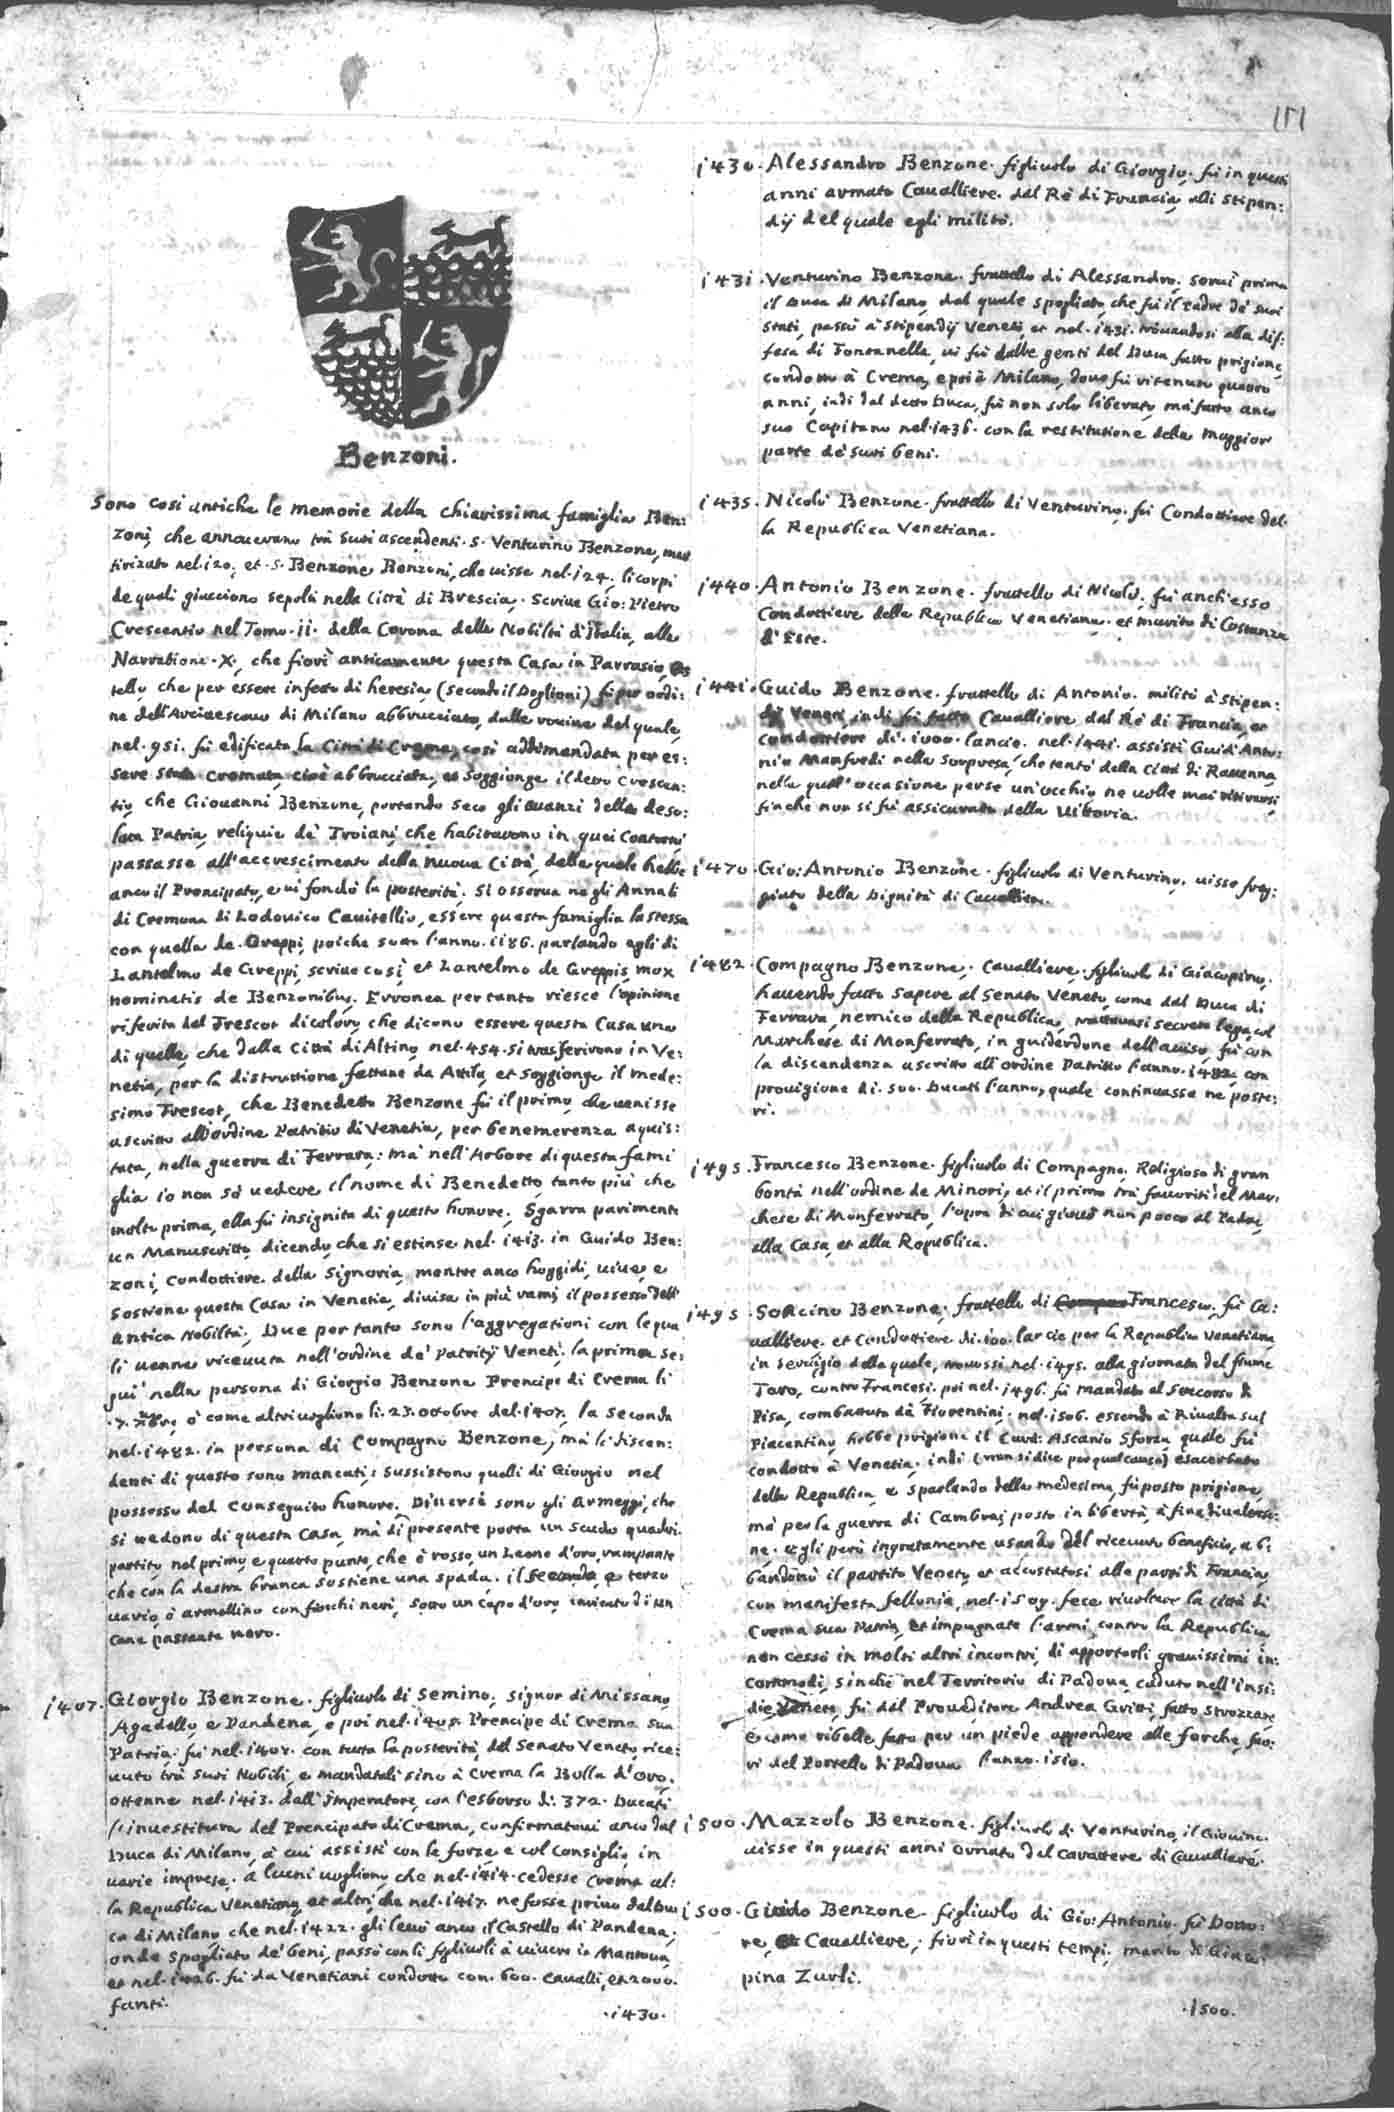 151
Benzoni.
Sono così antiche le memorie della chiarissima famiglia Ben:
zoni, che annoverano trà suoi ascendenti. S. Venturino Benzone, mar
tirizato nel. 120; et. S. Benzone Benzoni, che visse nel. 124; li corpi
de quali giacciono sepolti nella Città di Brescia. Scrive Gio: Pietro
Crescentio nel Tomo. ii. della Corona della Nobiltà d'Italia, alla
Narratione. X., che fiorì anticamente questa Casa in Parrasio, Cas
tello, che per essere infetto di heresia (secondo il Doglioni) fù per ordi:
ne dell'Arcivescovo di Milano abbrucciato, dalle rovine del quale,
nel. 951. fù edificata la Città di Crema, così addimandata per es:
sere stata Cremata, cioè abbrucciata, et soggionge il detto Crescen:
tio, che Giovanni Benzone, portando seco gli avanzi della deso:
lata Patria, reliquie de' Troiani, che habitavano in quei Contorni
passasse all'accrescimento della nuova Città, della quale hebbe
anco il Prencipato, e vi fondò la posterità. Si osserva negli Annali
di Cremona di Lodovico Cavitellio, essere questa famiglia la stessa
con quella de. Greppi, poiche sotto l'anno. 1186. parlando egli di
Lantelmo de Greppi, scrive così, et Lantelmo de Greppis, mox
nominatis de Benzonibus. Erronea per tanto riesce l'opinione
riferita dal Frescot di coloro, che dicono essere questa Casa una
di quelle, che dalla Città di Altino, nel. 454. si trasferirono in Ve:
netia, per la distruttione fattane da Attila, et soggionge il mede:
simo Frescot, che Benedetto Benzone fù il primo, che venisse
ascritto all'ordine Patritio di Venetia, per benemerenza aquis:
tata, nella guerra di Ferrara: mà nell'Arbore di questa fami
glia io non sò vedere il nome di Benedetto, tanto più che
molto prima, ella fù insignita di questo honore. Sgarra parimente
un Manuscritto, dicendo, che si estinse nel. 1413. in Guido Ben:
zoni, Condottiere. della Signoria, mentre anco hoggidì, vive, e
sostiene questa Casa in Venetia, divisa in più rami, il possesso dell'
antica Nobiltà. Due per tanto sono l'aggregationi con le qua
li venne ricevuta nell'ordine de' Patritij Veneti; la prima se:
guì nella persona di Giorgio Benzone Prencipe di Crema li
ò come altri vogliono li. 23. ottobre del. 1407. la seconda
nel. 1482. in persona di Compagno Benzone, mà li discen:
denti di questo sono mancati; sussistono quelli di Giorgio nel
possesso del conseguito honore. Diverse sono gli Armeggi, che
si vedono di questa Casa, mà di presente porta un scudo quadri
partito, nel primo, e quarto punto, che è rosso, un Leone d'oro, rampante
che con la destra branca sostiene una spada. il secondo, e terzo
vario, ò armellino con fiocchi neri, sotto un capo d'oro, caricato di un
cane passante nero.
1407. Giorgio Benzone. figliuolo di Semino, Signor di Missano,
Agadello, e Pandena, e poi nel. 1405. Prencipe di Crema sua
Patria; fù nel. 1407. con tutta la posterità, dal Senato Veneto, rice:
vuto trà suoi Nobili, e mandatali sino à Crema la Bolla d'Oro.
ottenne nel. 1413. dall'Imperatore, con l'esborso di. 372. Ducati
l'investitura del Prencipato di Crema, confirmatovi anco dal
Duca di Milano, à cui assistì con le forze e col Consiglio, in
varie imprese. Alcuni vogliono, che nel. 1414. cedesse Crema al:
la Republica Venetiana, et altri, che nel. 1417. ne fosse privo dal Du
ca di Milano che nel. 1422. gli levò anco il Castello di Pandena;
onde spogliato de' beni, passò con li figliuoli à vivere in Mantova,
et nel. 1426. fù da Venetiani condotto con. 600. Cavalli, et 2000.
fanti.
.1430.
1430. Alessandro Benzone. figliuolo di Giorgio. fù in questi
anni armato Cavalliere. dal Rè di Francia, alli stipen:
dij del quale egli militò.
1431. Venturino Benzone. frattello di Alessandro. servì prima
il Duca di Milano, dal quale spogliato, che fù il Padre de' suoi
stati, passò à stipendij Veneti, et nel. 1431. trovandosi alla dif:
fesa di Fontanella, vi fù dalle genti del Duca fatto prigione,
condotto à Crema, e poi à Milano, dove fù ritenuto quattro
anni, indi dal detto Duca, fù non solo liberato, mà fatto anco
suo Capitano nel. 1436. con la restitutione della maggior
parte de' suoi beni.
1435. Nicolò Benzone. frattello di Venturino. fù Condottiere del:
la Republica Venetiana.
1440. Antonio Benzone. frattello di Nicolò. fù anch'esso
Condottiere della Republica Venetiana. et marito di Costanza
d'Este.
1441. Guido Benzone. frattello di Antonio. militò à stipen:
dij Veneti, indi fù fatto Cavalliere dal Rè di Francia, et
condottiere di. 1000. lancie. nel. 1441. assistì Guid'Anto:
nio Manfredi nella sorpresa, che tentò della Città di Ravenna,
nella qual'occasione perse un'occhio, ne volle mai ritirarsi,
finche non si fù assicurato della Vittoria.
1470. Gio: Antonio Benzone. figliuolo di Venturino. visse freg:
giato della Dignità di Cavalliere.
1482. Compagno Benzone. Cavalliere. figliuolo di Giacopino.
havendo fatto sapere al Senato Veneto, come dal Duca di
Ferrara, nemico della Republica, trattavasi secreta lega, col
Marchese di Monferrato, in guiderdone dell'aviso, fù con
la discendenza ascritto all'ordine Patritio l'anno. 1482. con
provigione di. 500. Ducati l'anno, quale continuasse ne poste:
ri.
1495. Francesco Benzone. figliuolo di Compagno. Religioso di gran
bontà nell'ordine de Minori, et il primo trà favoriti del Mar:
chese di Monferrato, l'opra di cui giovò non poco al Padre,
alla Casa, et alla Republica.
1495. Soncino Benzone. frattello di Francesco. fù Ca:
valliere. et Condottiere di. 100. lancie per la Republica Venetiana,
in servigio della quale, trovossi nel. 1495. alla giornata del fiume
Taro, contro Francesi. poi nel. 1496. fù mandato al soccorso di
Pisa, combattuta da Fiorentini. nel. 1506. essendo à Rivalta sul
Piacentino, hebbe prigione il Card: Ascanio Sforza, quale fù
condotto à Venetia. indi (non si dice per qual causa) esacerbato
della Republica, e sparlando della medesima, fù posto prigione,
mà per la guerra di Cambrai posto in libertà, à fine di valersi:
ne. egli però ingratamente usando del ricevuto beneficio, ab:
bandonò il partito Veneto, et accostatosi alle parti di Francia,
con manifesta fellonia, nel. 1509. fece rivoltare la Città di
Crema sua Patria, et impugnate l'armi, contro la Republica
non cessò in molti altri incontri, di apportarli gravissimi in:
commodi, sinche nel Territorio di Padova, caduto nell'insi:
die Venete fù dal Proveditore Andrea Gritti, fatto strozzare
e come ribelle fatto per un piede appendere alle forche, fuo:
ri del Portello di Padova l'anno. 1510.
1500. Mazzolo Benzone. figliuolo di Venturino, il Giovine.
visse in questi anni ornato del Carattere di Cavalliere.
1500. Guido Benzone. figliuolo di Gio: Antonio. fù Dotto:
re, Cavalliere; fiorì in questi tempi. marito di Giaco:
pina Zurli.
.1500.